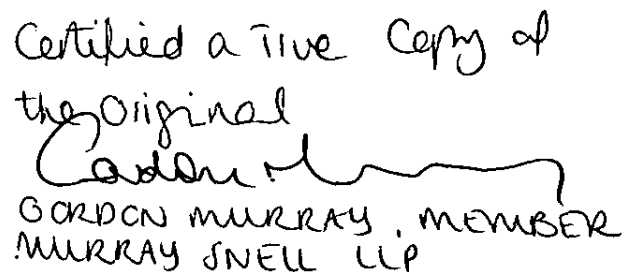 Certified a True Copy of
the Original
Gordon Murray
GORDON MURRAY, MEMBER
MURRAY SNELL LLP